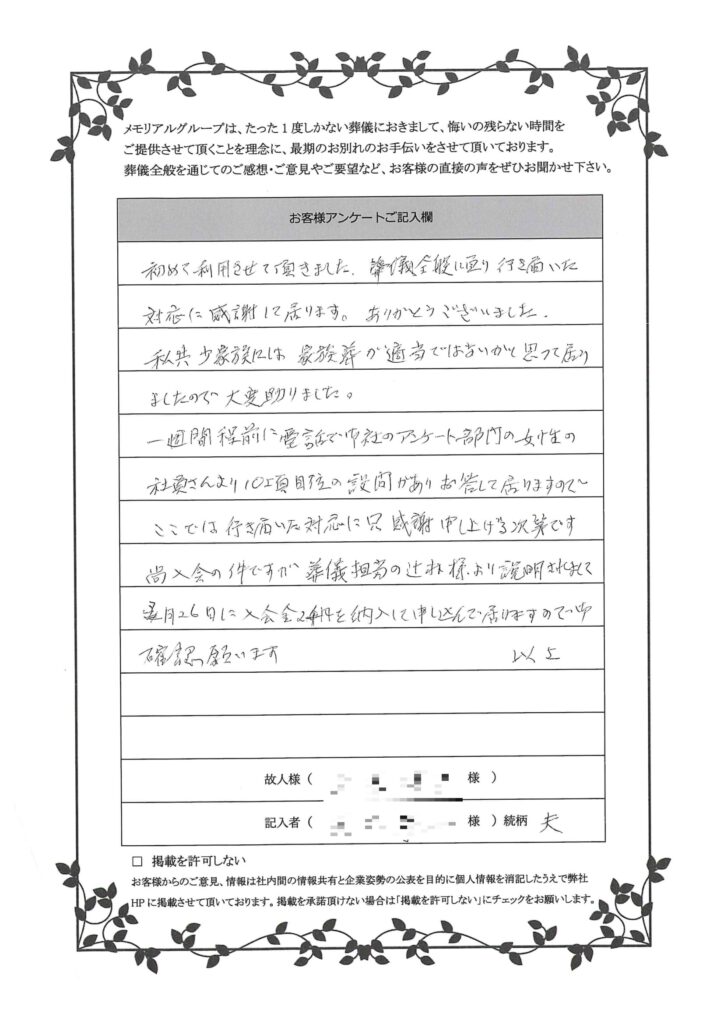 メモリアルグループは、たった1度しかない葬儀におきまして、悔いの残らない時間を
ご提供させて頂くことを理念に、最期のお別れのお手伝いをさせて頂いております。
葬儀全般を通じてのご感想・ご意見やご要望など、お客様の直接の声をぜひお聞かせ下さい。
お客様アンケートご記入欄
初めて利用させて頂きました。葬儀全般に亘り行き届いた
対応に感謝して居ります。ありがとうございました。
私共少家族には家族葬が適当ではないかと思って居り
ましたので大変助りました。
一週間程前に電話で御社のアンケート部門の女性の
社員さんより10項目位の設問がありお答して居りますので
ここでは行き届いた対応に只感謝申し上げる次第です
尚入会の件ですが葬儀担当の辻 様より説明されまして
月26日に入会金2件を納入して申し込んで居りますので御
確認願います 以上
故人様( 様 )
記入者( 様 )続柄 夫
□ 掲載を許可しない
お客様からのご意見、情報は社内間の情報共有と企業姿勢の公表を目的に個人情報を消記したうえで弊社
HPに掲載させて頂いております。掲載を承諾頂けない場合は「掲載を許可しない」にチェックをお願いします。